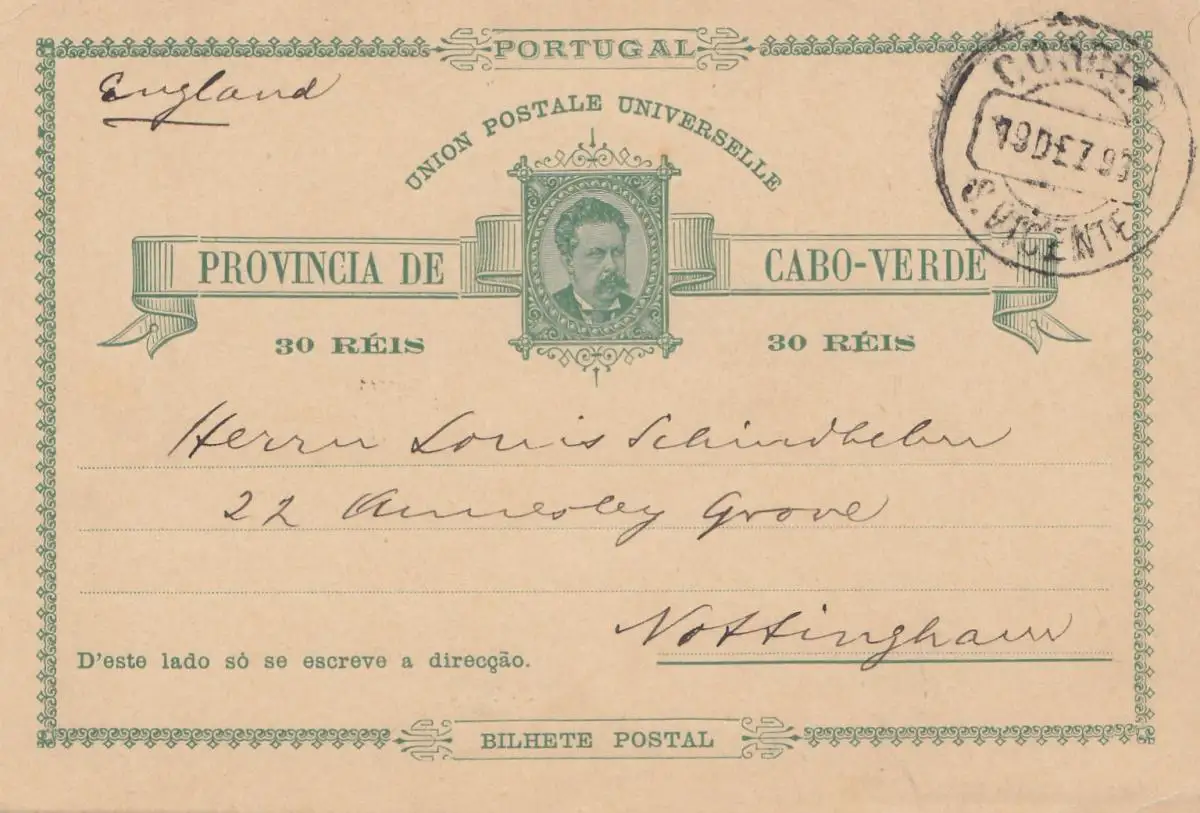 PORTUGAL
England
UNION POSTALE UNIVERSELLE
PROVINCIA DE CABO-VERDE
30 RÉIS 30 RÉIS
19 DEZ
S. VICENTE
Herrn Louis Schindhelm
22 Annesley Grove
Nottingham
D'este lado só se escreve a direcção.
BILHETE POSTAL